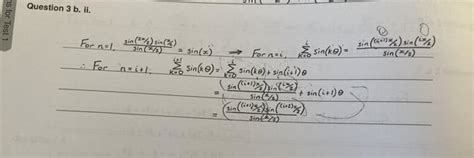 s for Test 1
Question 3 b. ii.
For n=1, sin(2x/2) sin(x/2) / sin(x/2) = sin(x) → For n=i, Σ k=0 i sin(kθ) = sin((i+1)x/2) sin(ix/2) / sin(x/2)
∴ For n=i+1, Σ k=0 sin(kθ) = Σ k=0 i sin(kθ) + sin(i+1)θ
= (sin((i+1)x/2) sin(ix/2) / sin(x/2)) + sin(i+1)θ
= (sin((i+1)x/2) sin((i+2)x/2) / sin(x/2))